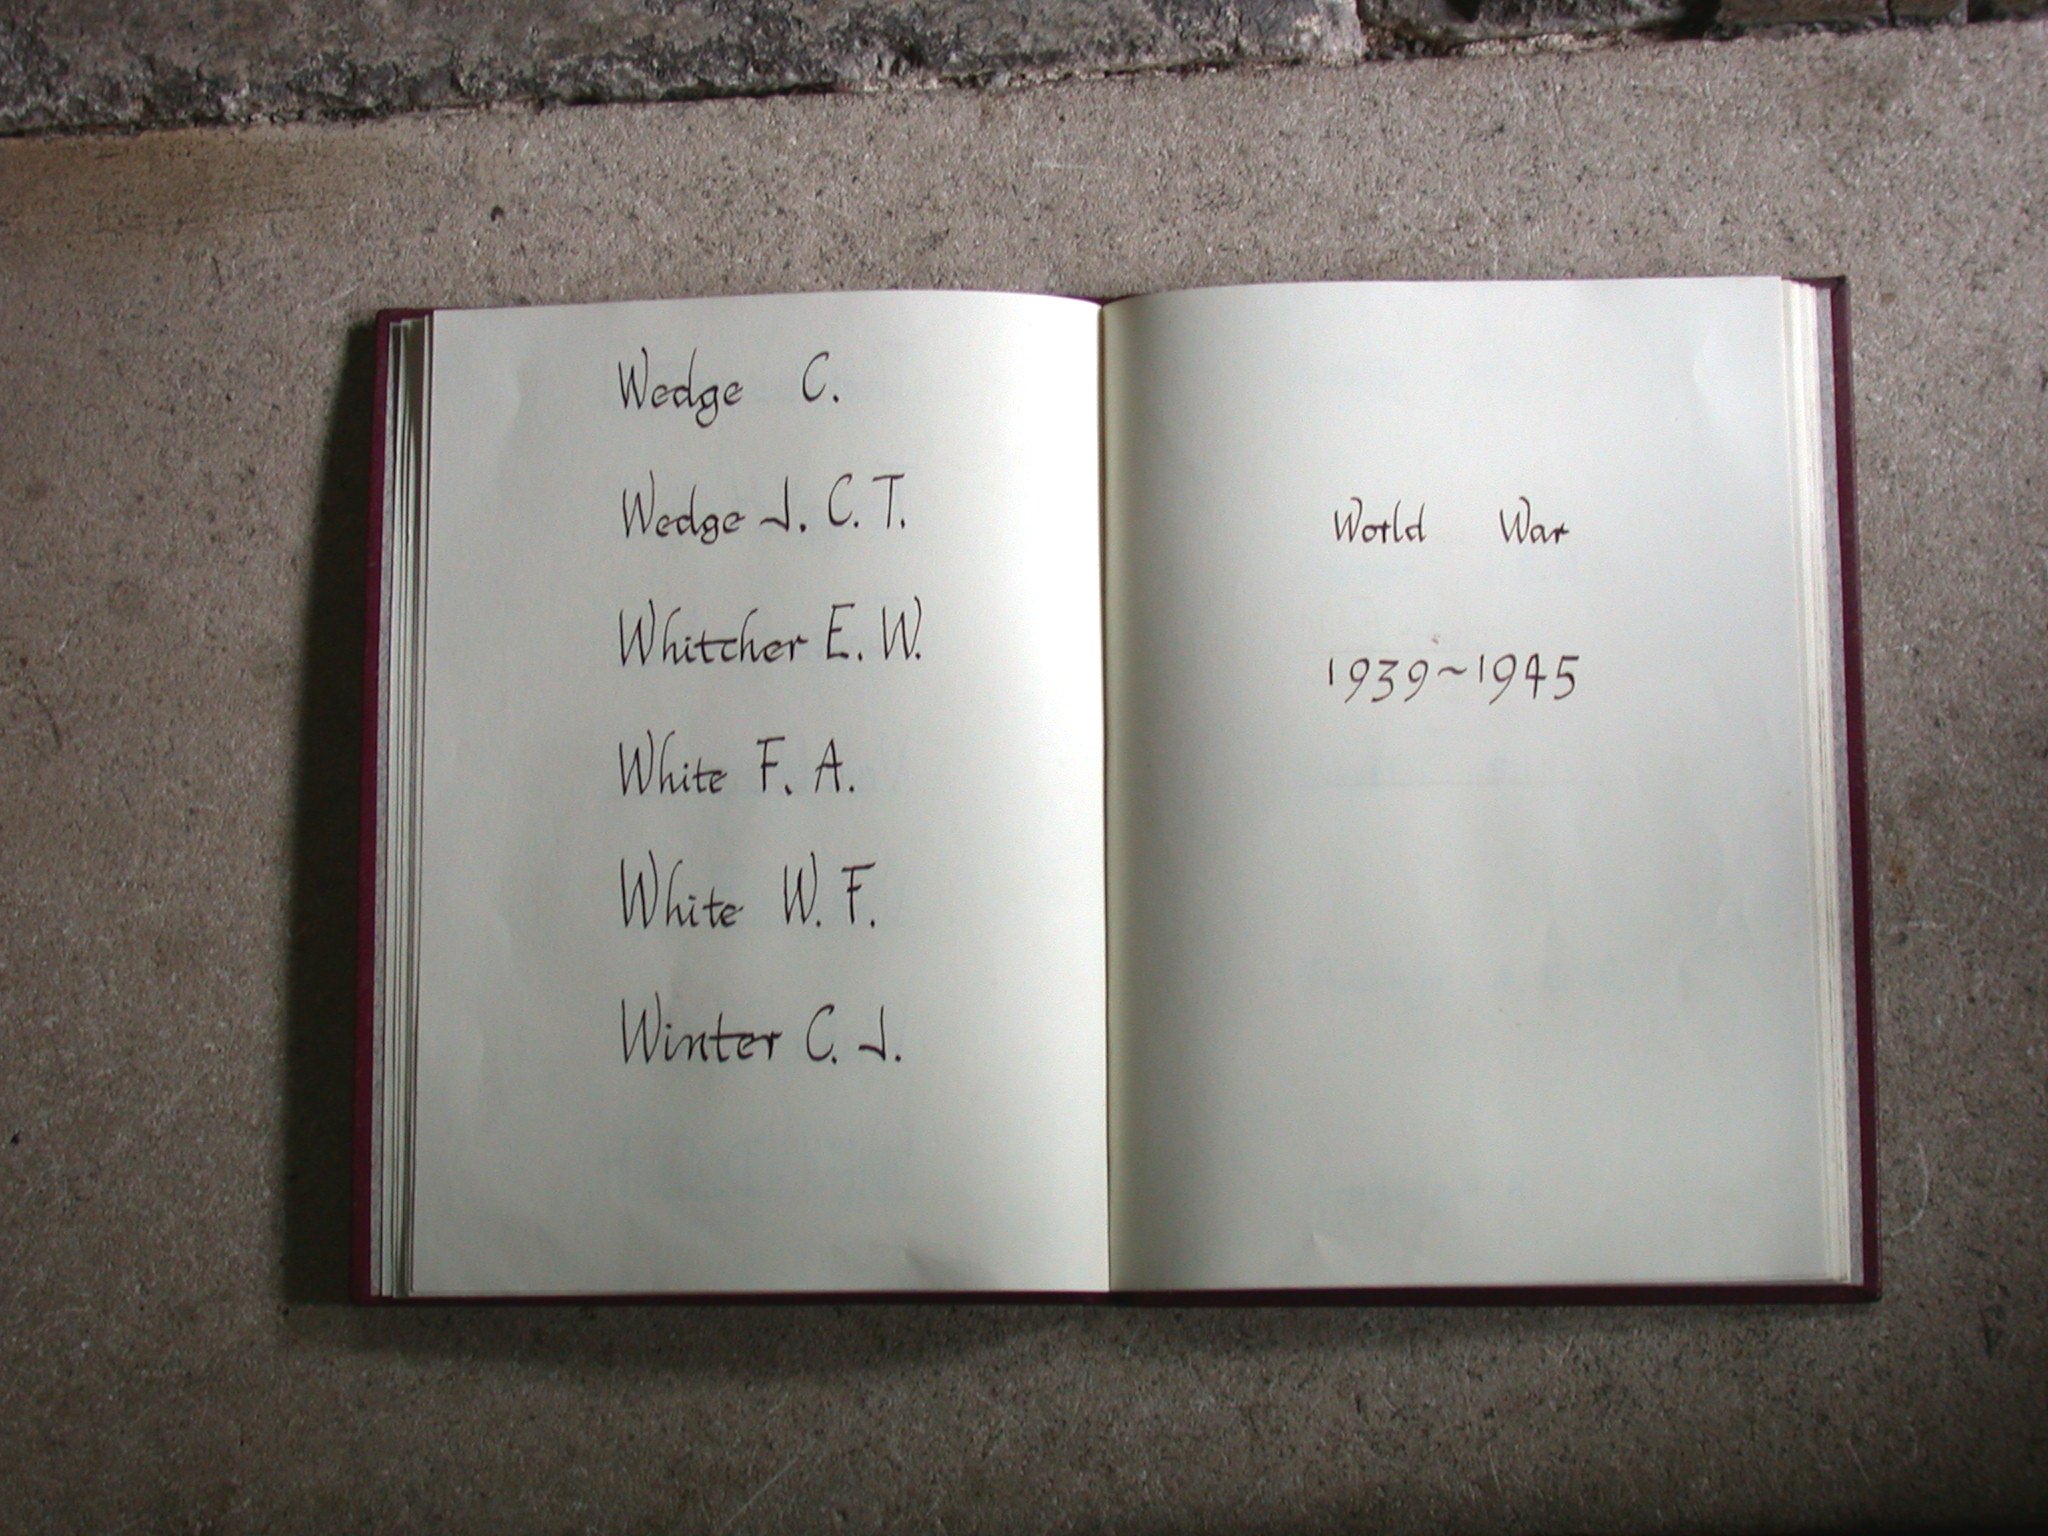 Wedge C.
Wedge J. C. T.
Whitcher E. W.
White F. A.
White W. F.
Winter C. J.
World War
1939~1945